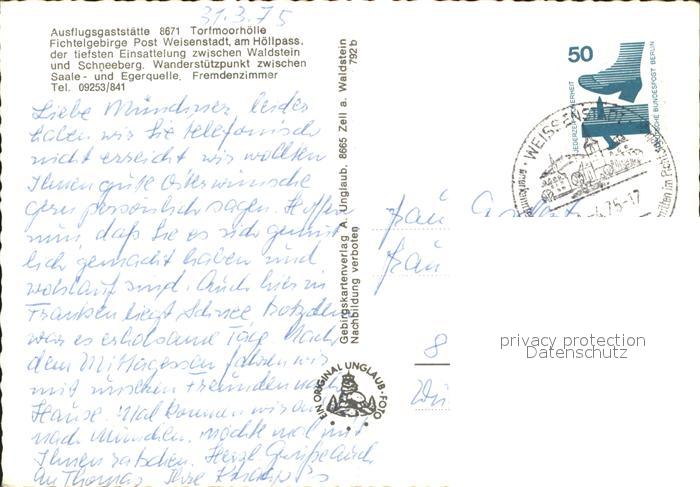 31.3.75
Ausflugsgaststätte 8671 Torfmoorhölle
Fichtelgebirge Post Weisenstadt, am Höllpass,
der tiefsten Einsattelung zwischen Waldstein
und Schneeberg. Wanderstützpunkt zwischen
Saale- und Egerquelle. Fremdenzimmer
Tel. 09253/841
Liebe Münchner, leider
haben wir Sie telefonisch
nicht erreicht wir wollten
Ihnen gute Osterwünsche
gern persönlich sagen. Hoffen
nun, daß Sie es sich gemüt
lich gemacht haben und
wohlauf sind. Auch hier in
Franken liegt Schnee trotzdem
war es erholsame Tage. Nach
dem Mittagessen fahren wir
mit unseren Freunden nach
Hause. Mal kommen wir
nach München, möchte mal mit
Ihnen ratschen. Herzl
an Thomas Ihre
Gebirgskartenverlag A. Unglaub, 8665 Zell a. Waldstein
Nachbildung verboten
792 b
EIN ORIGINAL UNGLAUB-FOTO
50
JEDERZEIT SICHERHEIT
DEUTSCHE BUNDESPOST BERLIN
WEISSENSTADT
.75-17
mitten im
Frau
Frau
8
privacy protection
Datenschutz